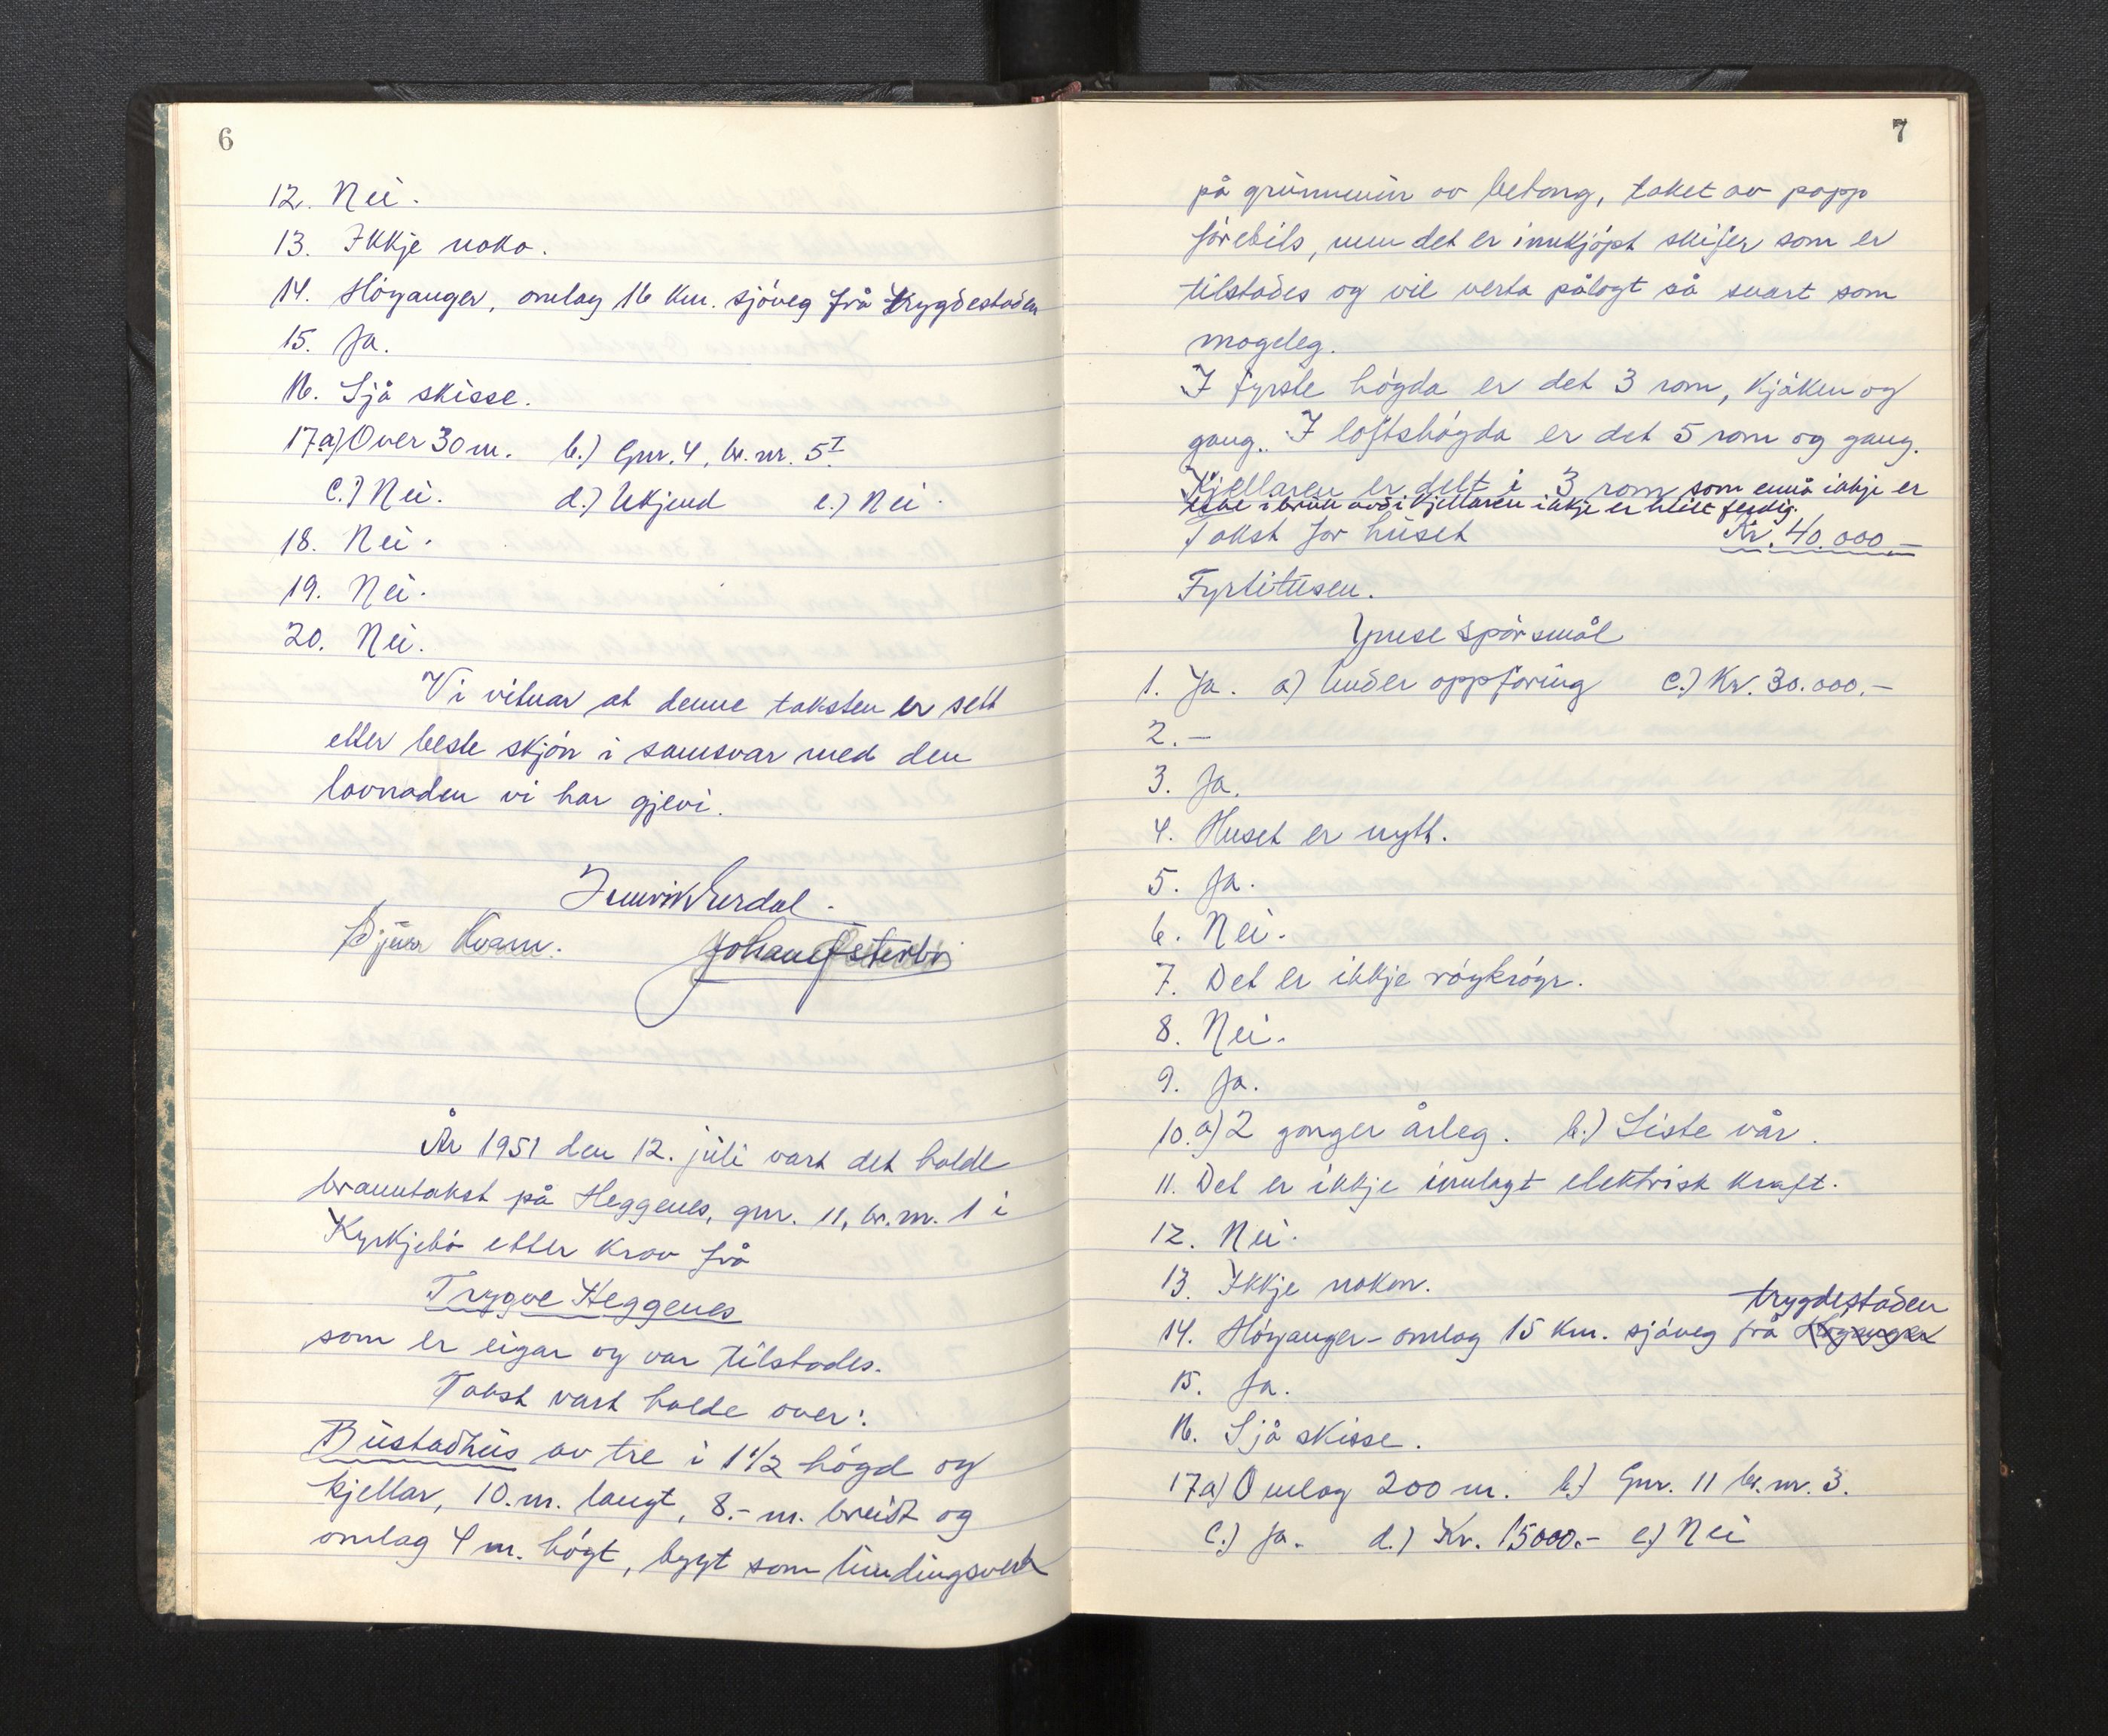 6
12. Nei.
13. Ikkje noko.
14. Höyanger, omlag 16 km. sjöveg frå trygdestaden
15. Ja.
16. Sjå skisse.
17a) Over 30 m. b.) Gnr. 4, br. nr. 5 I.
c.) Nei. d.) Ukjend e.) Nei.
18. Nei.
19. Nei.
20. Nei.
Vi vitnar at denne taksten er sett
etter beste skjön i samsvar med den
lovnaden vi har gjevi.
Hjörr Kvam. Johan Österbö
År 1951 den 12. juli vart det halde
branntakst på Heggenes, gnr. 11, br. nr. 1 i
Kyrkjebö etter krav frå
Trygve Heggenes
som er eigar og var tilstades.
Takst vart halde over:
Bustadhus av tre i 1 1/2 högd og
kjellar, 10. m. langt, 8.- m. breidt og
omlag 4 m. högt, bygt som bindingsverk
7
på grunnmur av betong, taket av papp
förebils, men det er innkjöpt skifer som er
tilstades og vil verta pålagt så snart som
mogeleg.
I fyrste högda er det 3 rom, kjöken og
gang. I loftshögda er det 5 rom og gang.
Kjellaren er delt i 3 rom som ennå ikkje er
i bruk avdi kjellaren ikkje er heilt ferdig.
Takst for huset Kr. 40.000.-
Fyrtitusen.
Ymse spörsmål
1. Ja. a) Under oppföring c.) Kr. 30.000.-
2. -
3. Ja.
4. Huset er nytt.
5. Ja.
6. Nei.
7. Det er ikkje röykröyr.
8. Nei.
9. Ja.
10. a) 2 gonger årleg. b.) Siste vår.
11. Det er ikkje innlagt elektrisk kraft.
12. Nei.
13. Ikkje nokon.
trygdestaden
14. Höyanger - omlag 15 km. sjöveg frå Höyanger
15. Ja.
16. Sjå skisse.
17a) Omlag 200 m. b.) Gnr. 11 br. nr. 3.
c.) Ja. d.) Kr. 15000.- e.) Nei